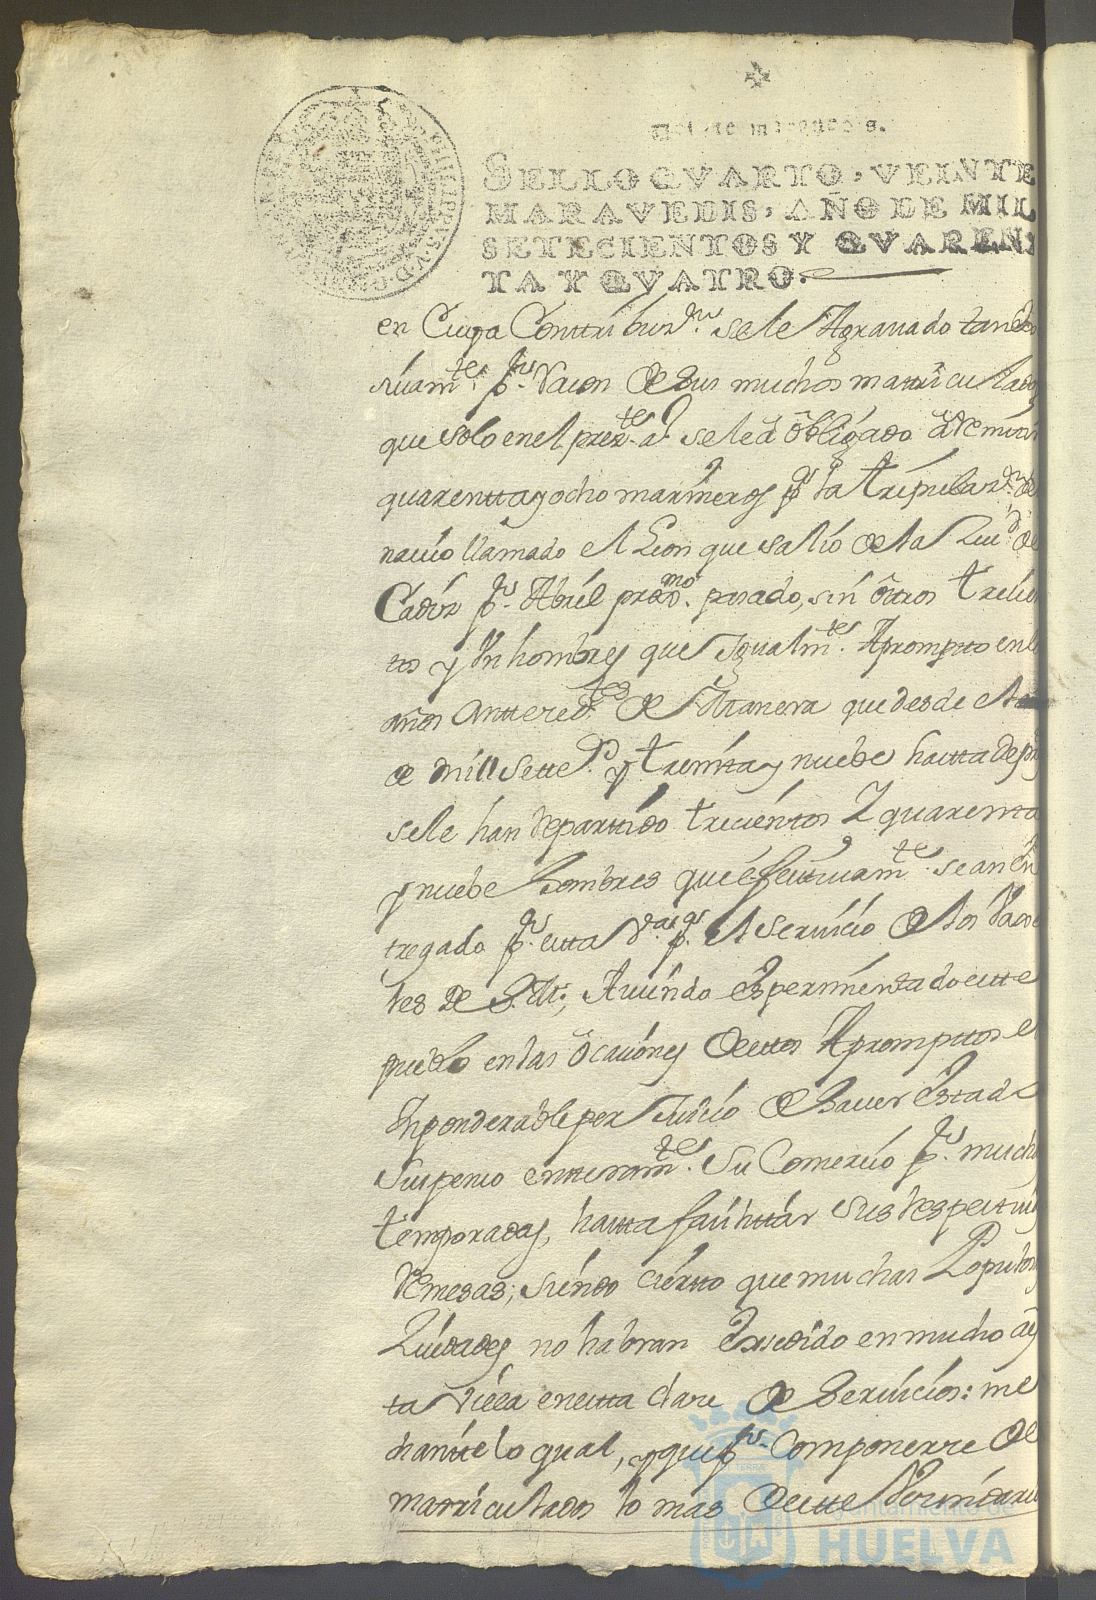 SELLO QVARTO, VEINTE
MARAVEDIS, AÑO DE MIL
SETECIENTOS Y QVAREN
TA Y QVATRO.
en Cuya Conttribuzn. se le Agrauado tan
suamte. pr. Razon de sus muchos mattriculados
que solo en el prezte. a. se le a obligado a Remitir
quarentta y ocho marineros pa. la tripulazn. de
nauio llamado el Leon que salio de la Ziud. de
Cadiz pr. Abril proxmo. pasado, sin ottros trecien
tos y Un hombres que Igualmte. Apromptto en lo
años antteredtes. de Manera que desde el
de mill settezs. y treinta y nuebe hasta de
se le han Repartido trecientos Y quarenta
y nuebe hombres que efectiuamte. se an en
tregado pr. esta Va. pa. el seruicio de los Vaxe
les de S. M.; Auiendo Experimentado este
pueblo en las ocaciones de estos Apromptos el
Inponderable perJuicio de Hauer Estado
suspenso entteramte. su Comercio pr. mucha
temporadas, hasta facilittar sus Respectiua
Remesas; siendo cierto que muchas Populosas
Ziudades no habran Exsedido en mucho a es
ta Villa en esta clase de Seruicios: me
diante lo qual, y que pr. componerse de
mattriculados lo mas de este Vecindario
Ayuntamiento de
HUELVA